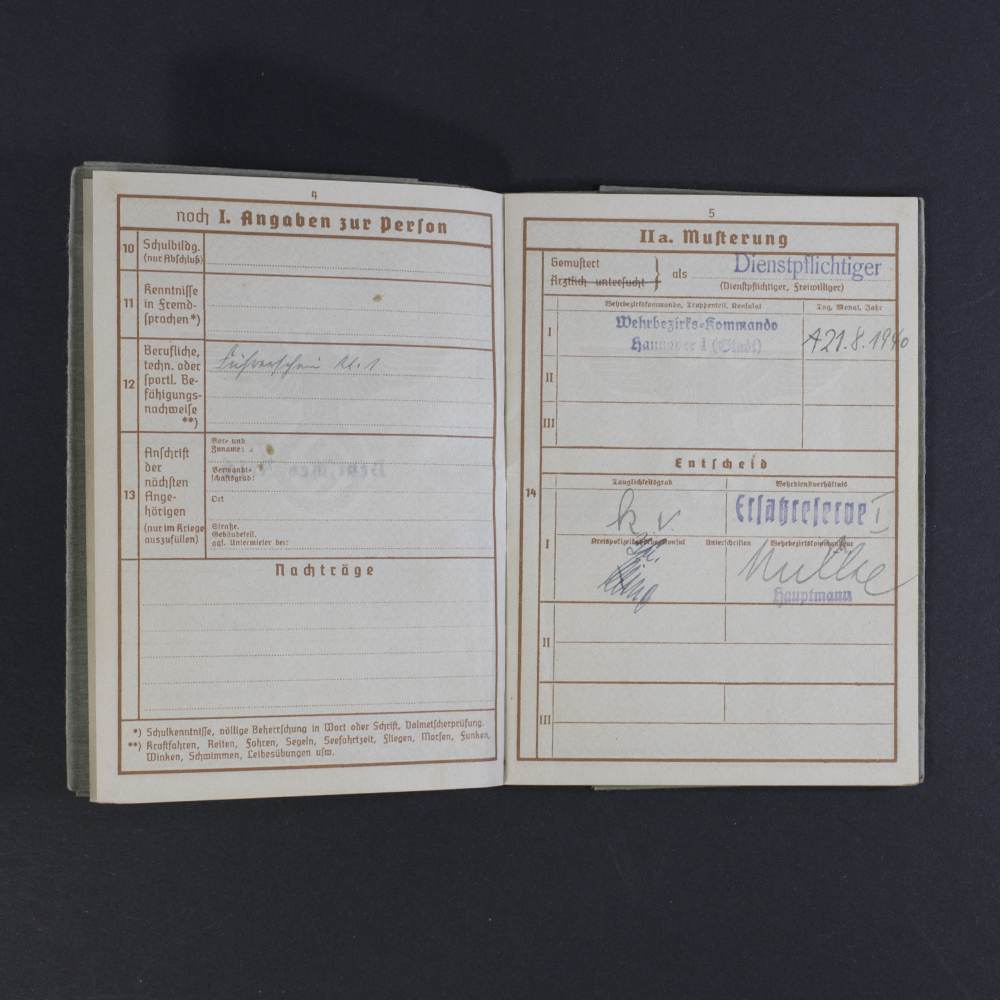 4
noch I. Angaben zur Person
10
Schulbildg.
(nur Abschluß)
11
Kenntnisse
in Fremd-
sprachen*)
12
Berufliche,
techn. oder
sportl. Be-
fähigungs-
nachweise
**)
Führerschein Kl. 1
13
Anschrift
der
nächsten
Ange-
hörigen
(nur im Kriege
auszufüllen)
Vor- und
Zuname:
Verwandt-
schaftsgrad:
Ort
Straße,
Gebäudeteil,
ggf. Untermieter bei:
Nachträge
*) Schulkenntnisse, völlige Beherrschung in Wort oder Schrift, Dolmetscherprüfung.
**) Kraftfahren, Reiten, Fahren, Segeln, Seefahrtzeit, Fliegen, Morsen, Funken,
Winken, Schwimmen, Leibesübungen usw.
5
IIa. Musterung
Gemustert
Ärztlich untersucht
als
Dienstpflichtiger
(Dienstpflichtiger, Freiwilliger)
Wehrbezirkskommando, Truppenteil, Konsulat
Tag, Monat, Jahr
I
Wehrbezirks-Kommando
Hannover I (Stadt)
21.8.1940
II
III
Entscheid
14
Tauglichkeitsgrad
Wehrdienstverhältnis
k.v.
Ersatzreserve I
I
Unterschriften
Wehrbezirkskommandeur
Hauptmann
II
III